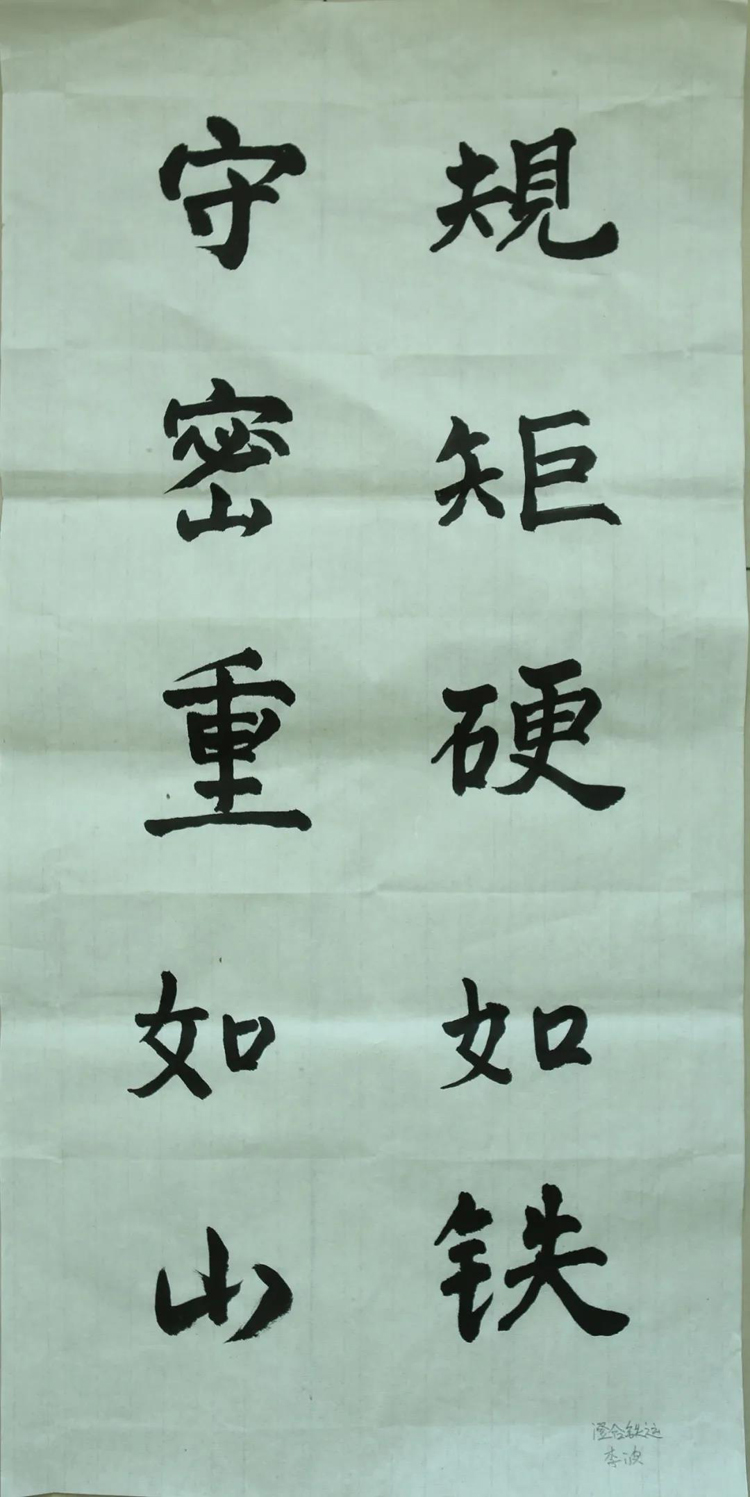 規矩硬如铁
守密重如山
澄合铁运
李波